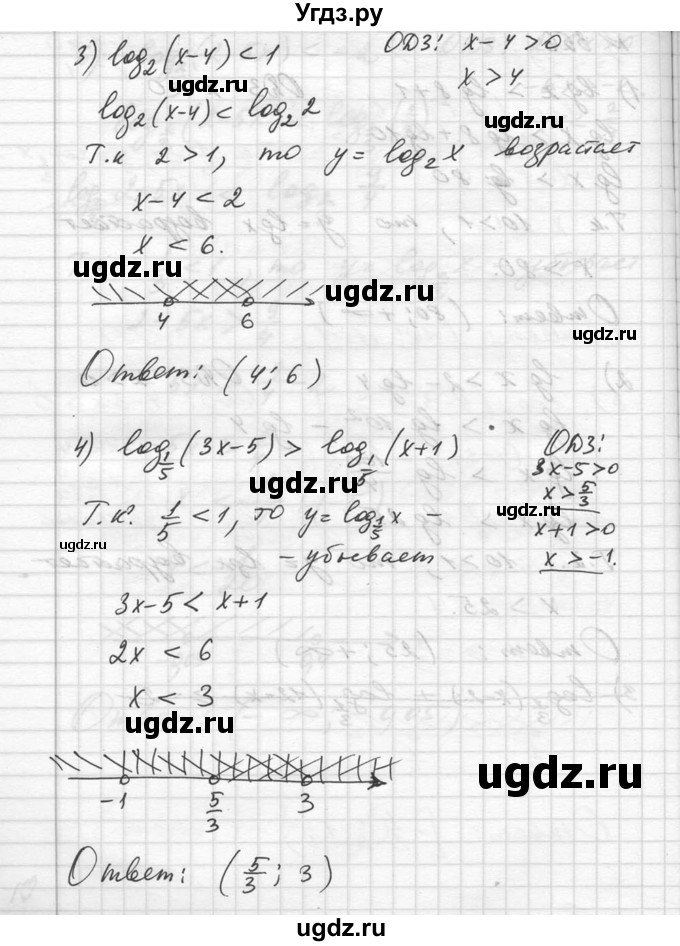 Угдз.ру
3) log₂(x-4) < 1    ОДЗ: x-4>0
ugdz.ru    x > 4
log₂(x-4) < log₂2    ugdz.ru
Т.к 2 > 1, то y = log₂x возрастает
ugdz.ru
x-4 < 2
x < 6.
ugdz.ru    ugdz.ru
4    6
ugdz.ru
Ответ: (4; 6)
ugdz.ru
4) log_{1/5}(3x-5) > log_{1/5}(x+1)    ОДЗ:
3x-5>0
ugdz.ru    x > 5/3
Т.к. 1/5 < 1, то y = log_{1/5}x -    ugdz.ru
x+1>0
ugdz.ru    - убывает    x > -1.
3x-5 < x+1
2x < 6
ugdz.ru
x < 3
ugdz.ru
ugdz.ru
-1    5/3    3
ugdz.ru    ugdz.ru
Ответ: (5/3; 3)
ugdz.ru    ugdz.ru
ugdz.ru